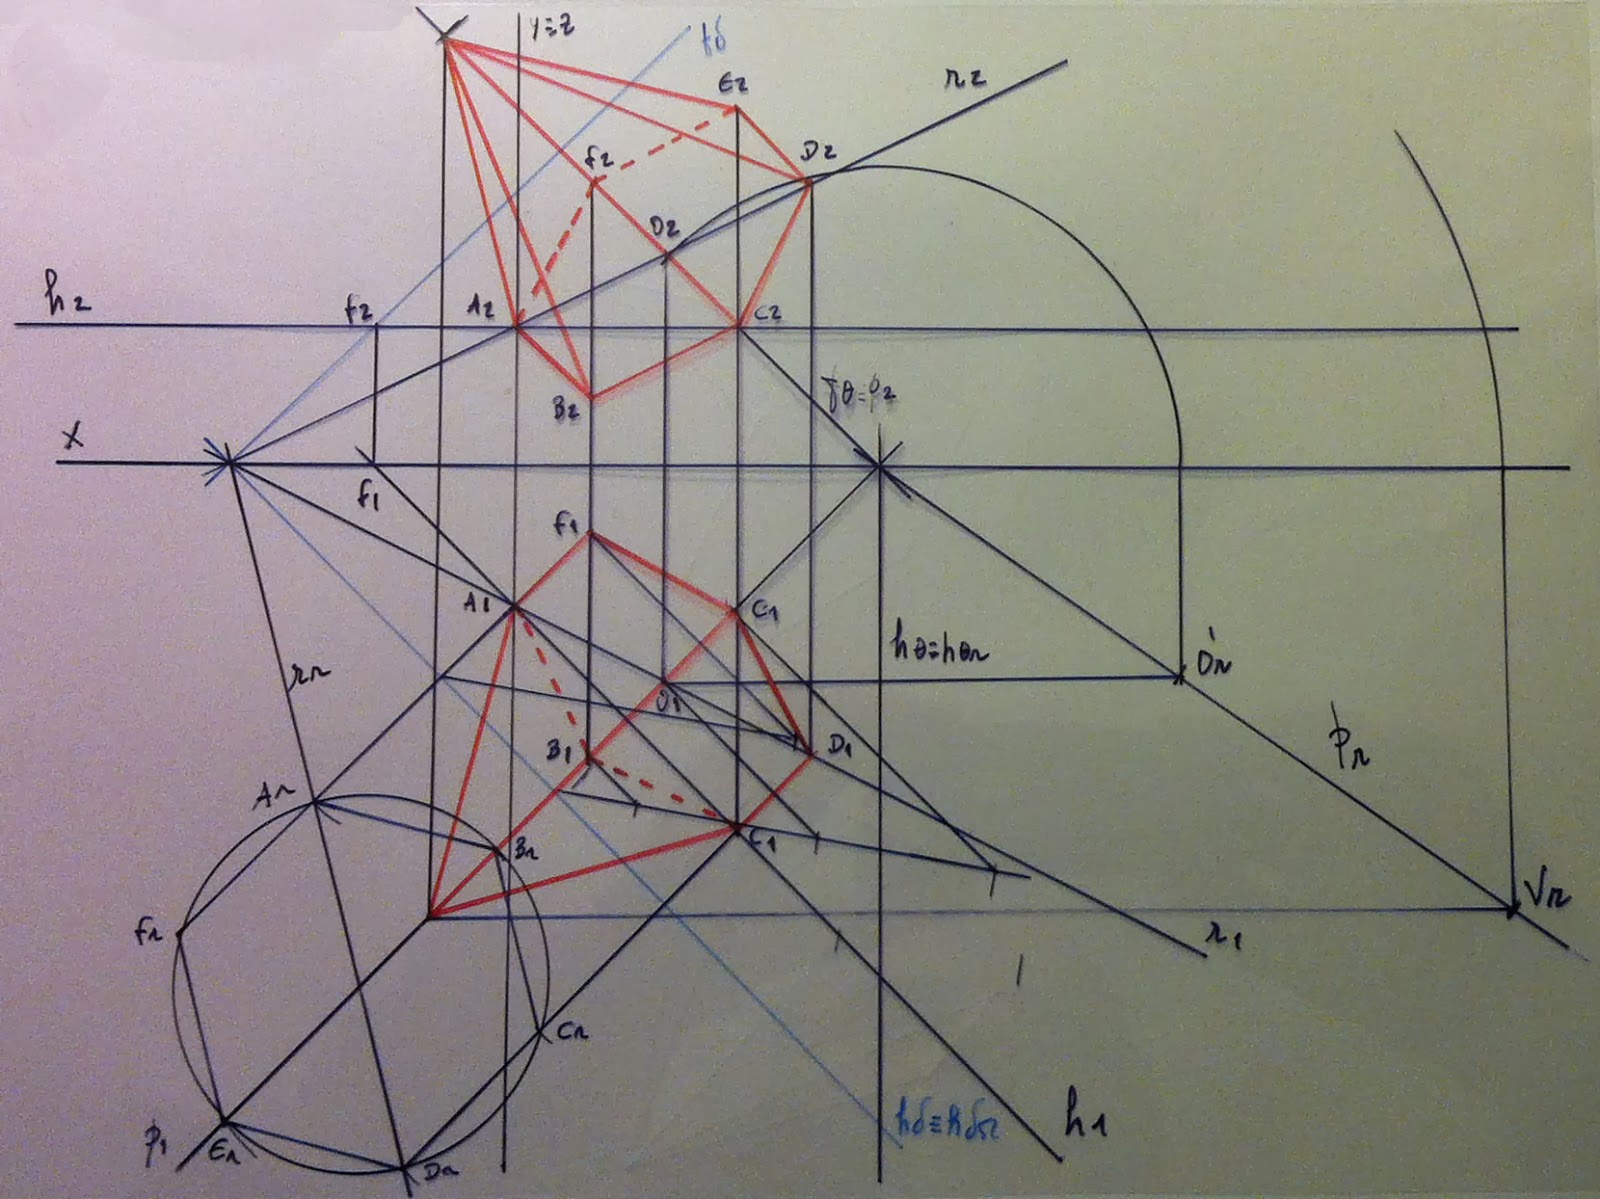 y≡z
fδ
E2
r2
F2
D2
O2
h2
F2
A2
C2
fθ≡p2
B2
x
F1
F1
A1
C1
hθ≡hθr
Or
O1
rr
B1
D1
pr
Ar
Br
C1
Vr
Fr
r1
Cr
hδ≡hδr
h1
p1
Er
Dr